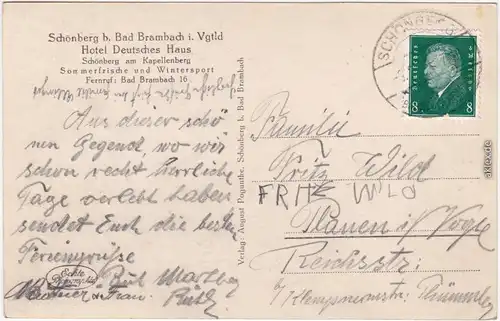 Schönberg b. Bad Brambach i. Vgtld
Hotel Deutsches Haus
Schönberg am Kapellenberg
Sommerfrische und Wintersport
Fernruf: Bad Brambach 16
Aus dieser schö
nen Gegend, wo wir
schon recht herrliche
Tage verlebt haben
sendet Euch die besten
Feriengrüsse
Echte Photographie
u. Frau.
Verlag: August Poguntke, Schönberg b. Bad Brambach
SCHÖNBERG
Deutsches Reich
8 8
Familie
Fritz Wild
FRITZ WILD
Plauen i/ Vogtl
Reichsstr.
b/ Klempnermstr.